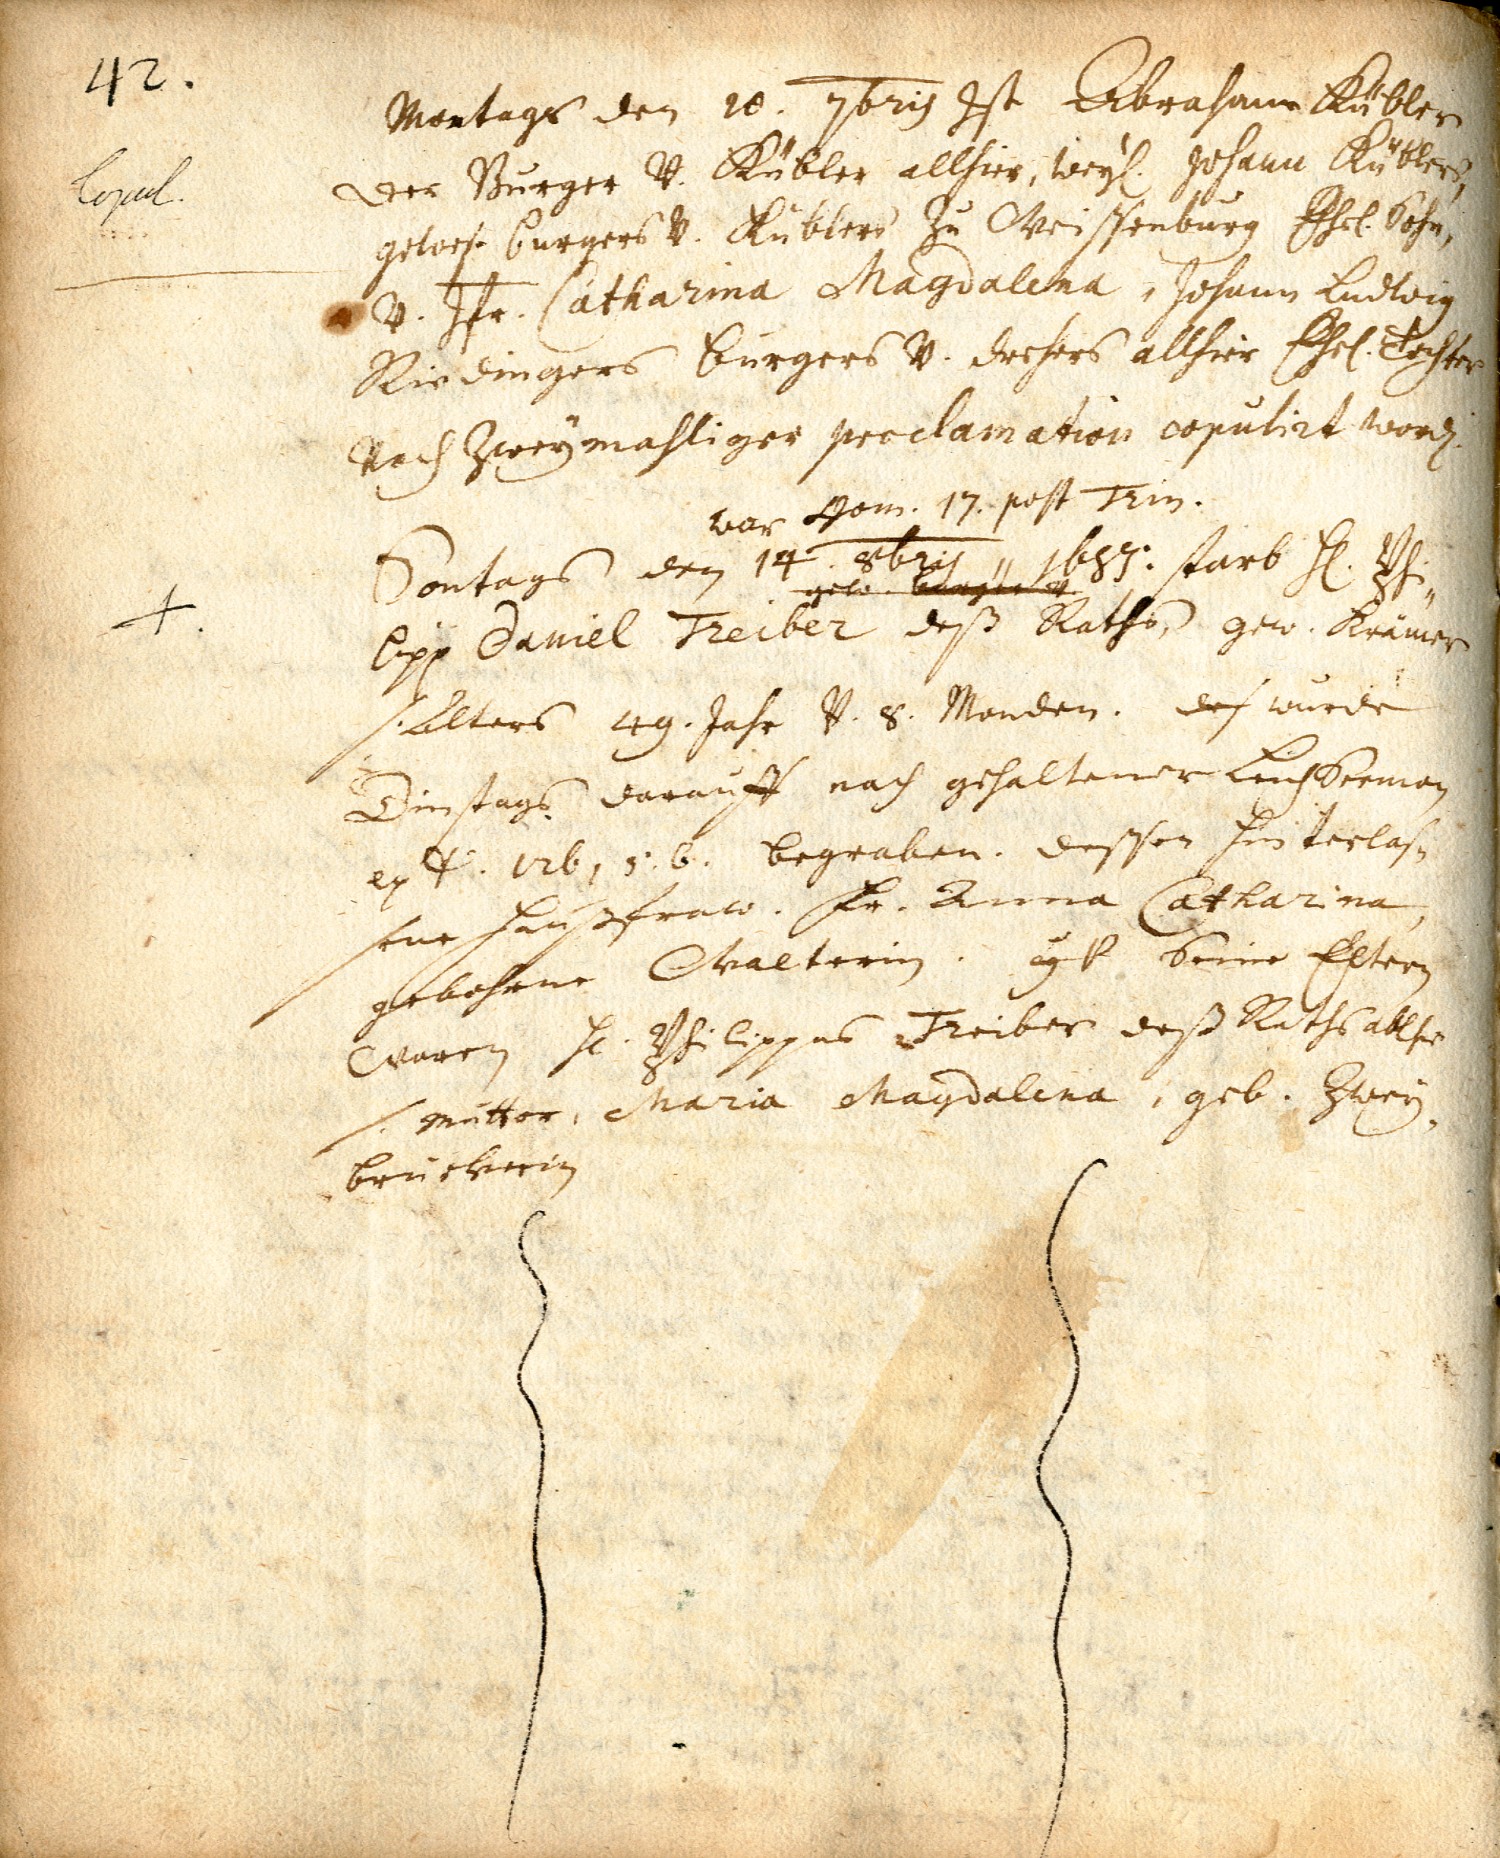 42.
Montags den 10. 7bris Ist Abraham Kübler
Copul.
der Burger v. Kübler allhier, weyl. Johann Küblers,
gewes. burgers v. Küblers zu Weissenburg Ehel. Sohn,
v. Jfr. Catharina Magdalena, Johann Ludwig
Riedingers burgers v. drehers allhier Ehel. Tochter
Nach Zweymahliger proclamation copulirt word.
war Dom. 17. post Trin.
Sontags den 14. 8bris starb H. Phi-
+.
lipp Daniel Treiber deß Raths, gew. Krämer
s. Alters 49. Jahr v. 8. Monden. wurde
Dinstags darauff nach gehaltener Leich Sermon
ex ψ. 126, 5. 6. begraben. dessen hinterlas-
sene haußfraw. Fr. Anna Catharina,
gebohrne Walterin. Seine Eltern
waren H. Philippus Treiber deß Raths allhie
s. mutter, Maria Magdalena, geb. Zwey-
bruckerin